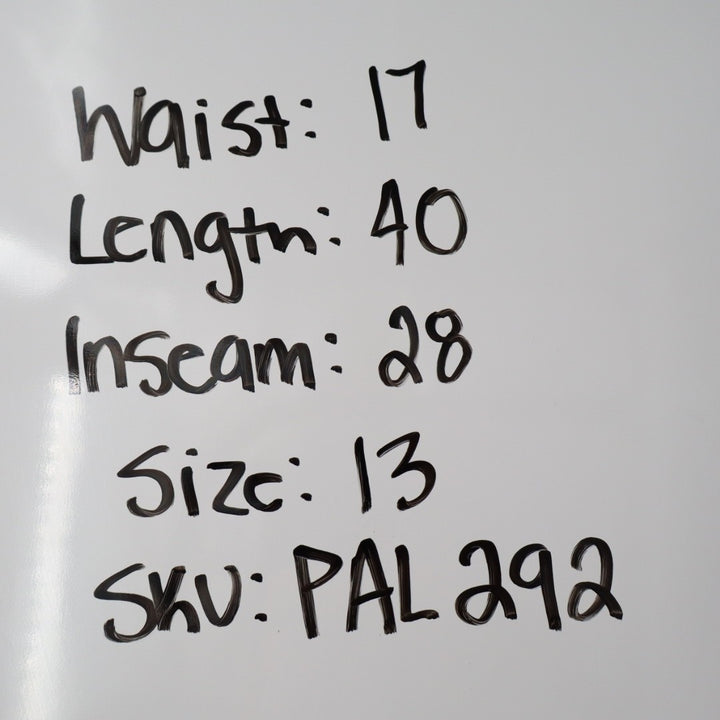 Waist: 17
Length: 40
Inseam: 28
Size: 13
SKU: PAL292